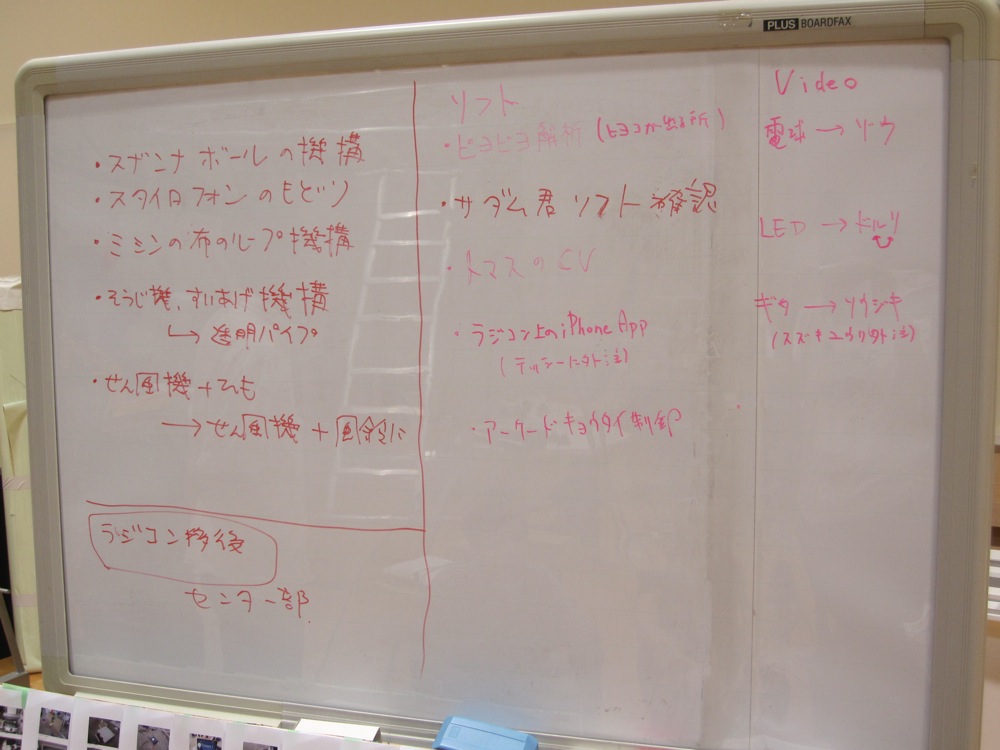 PLUS BOARDFAX
・スザンナ ボール の機構
・スタイロフォン のもどり
・ミシンの布のループ機構
・そうじ機、すいあげ機構
↳ 透明パイプ
・せん風機 + ひも
→ せん風機 + 風鈴に
ラジコン
センター部
ソフト
・ピヨピヨ解析 (ヒヨコが出る所)
・サダム君 ソフト 確認
・トマスのCV
・ラジコン上のiPhone App
・アーケードキョウタイ制御
Video
電球 → ゾウ
LED → ドルリ
ギタ → ソウジキ